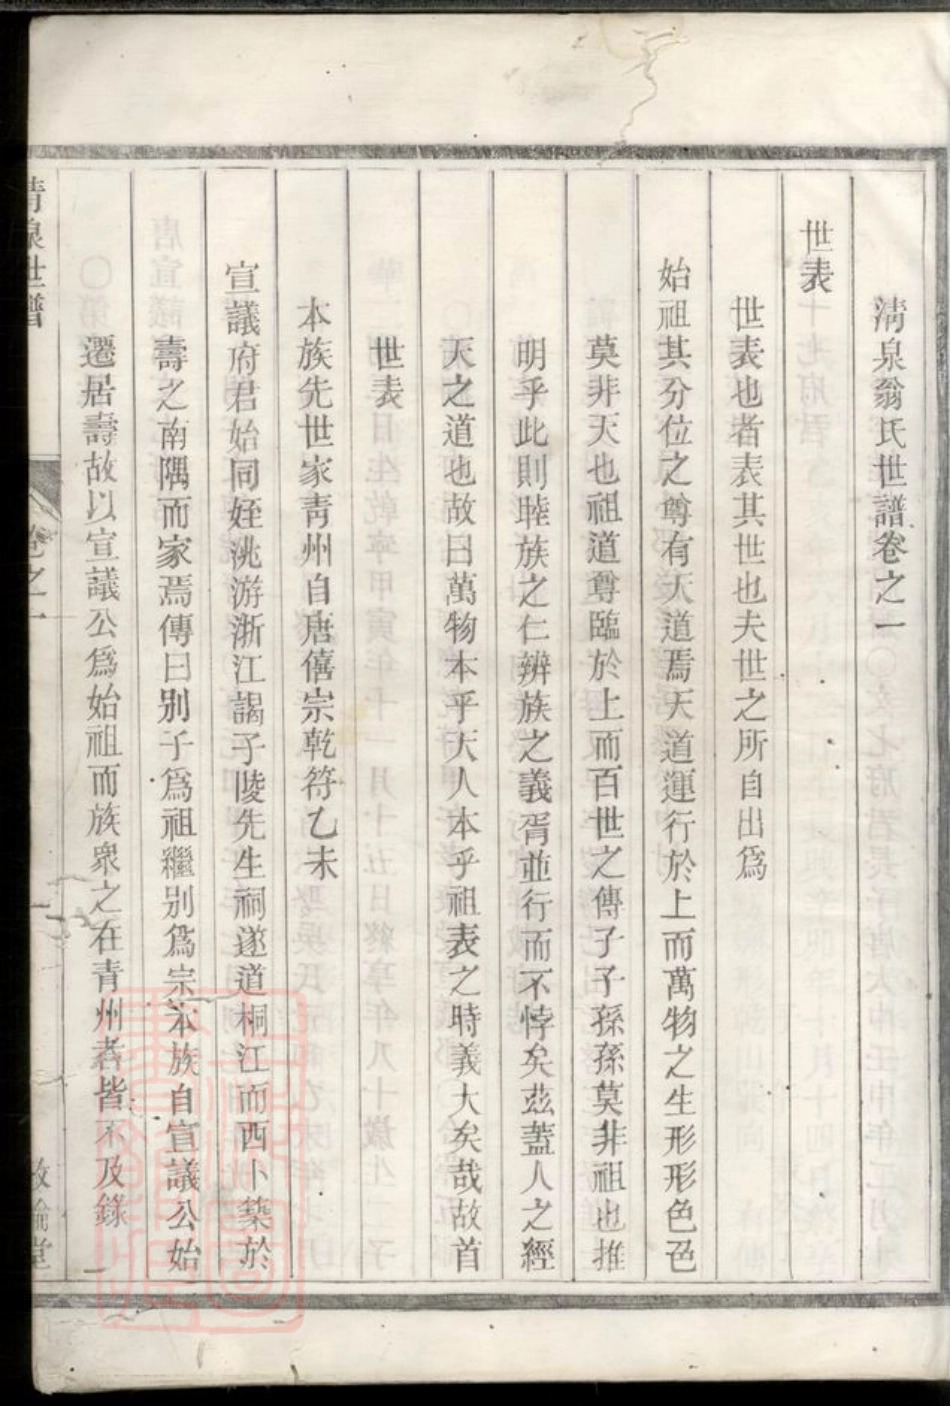 清泉翁氏世譜卷之一
世表
世表也者表其世也夫世之所自出爲
始祖其分位之尊有天道焉天道運行於上而萬物之生形形色色
莫非天也祖道尊臨於上而百世之傳子子孫孫莫非祖也推
明乎此則睦族之仁辨族之義胥並行而不悖矣茲蓋人之經
天之道也故曰萬物本乎天人本乎祖表之時義大矣哉故首
世表
本族先世家靑州自唐僖宗乾符乙未
宣議府君始同姪洮游浙江謁子陵先生祠遂道桐江而西卜築於
壽之南隅而家焉傳曰別子爲祖繼別爲宗本族自宣議公始
遷居壽故以宣議公爲始祖而族衆之在青州者皆不及錄
清泉世譜
卷之一
敘倫堂